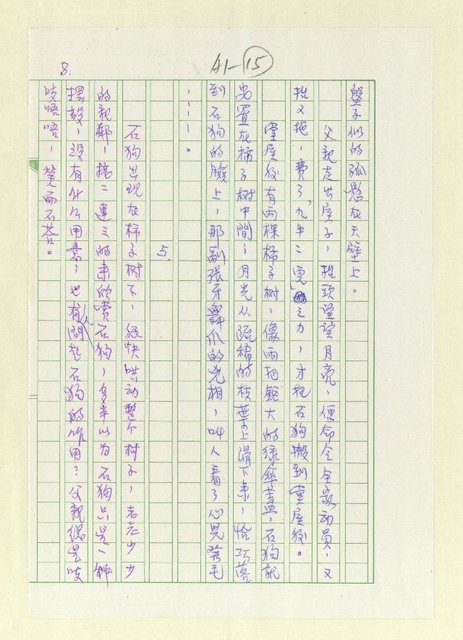 A1-15
8.
盤子似的孤懸在天壁上。
父親走出房子，抬頭望望月亮，便命令全家動員，又
推又拖，費了九牛二虎之力，才把石狗搬到堂屋後。
堂屋後有兩棵柿子樹，像兩把龐大的綠傘蓋，石狗就
安置在柿子樹中間，月光從疏稀的枝葉上滑下來，恰巧落
到石狗的臉上，那副張牙舞爪的兇相，叫人看了心兒發毛
……。
5.
石狗出現在柿子樹下，很快哄動整个村子，老老少少
的親鄰，接二連三的來欣賞石狗，多半以為石狗只是一種
擺設，沒有什么用意，也有人問起石狗的作用？父親總是吱
吱唔唔，笑而不答。